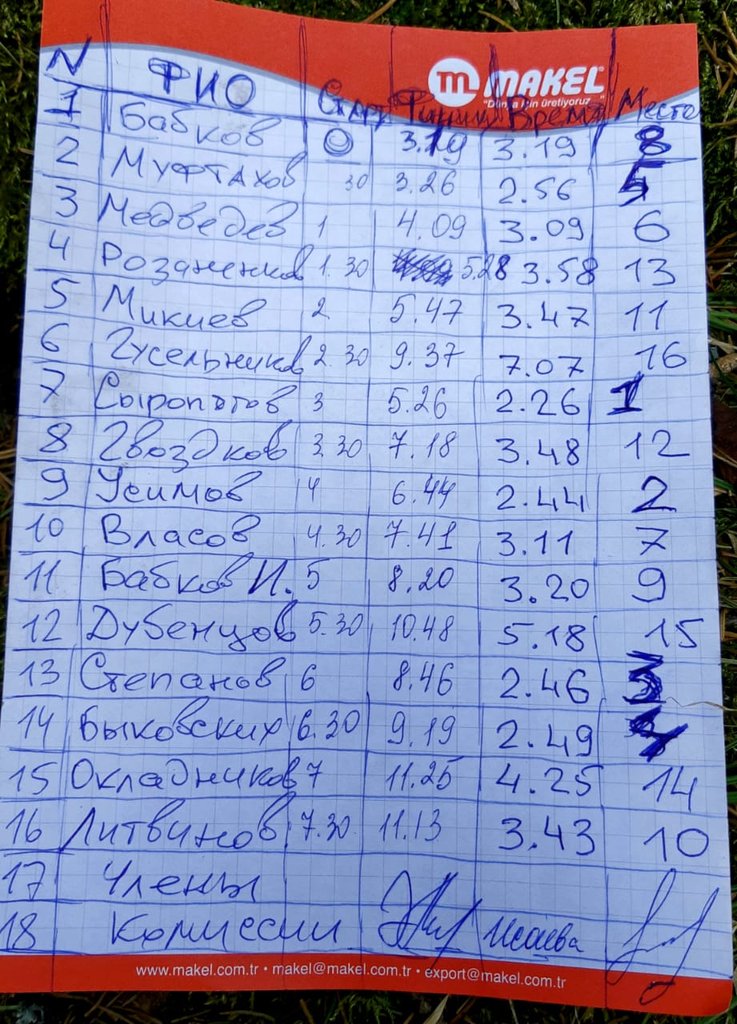 MAKEL
"Dünya için üretiyoruz"
N ФИО Старт Финиш Время Место
1 Бабков 0 3.19 3.19 8
2 Муфтахов 30 3.26 2.56 5
3 Медведев 1 4.09 3.09 6
4 Розаненков 1.30 5.28 3.58 13
5 Микиев 2 5.47 3.47 11
6 Гусельников 2.30 9.37 7.07 16
7 Сыропятов 3 5.26 2.26 1
8 Гвоздков 3.30 7.18 3.48 12
9 Усимов 4 6.44 2.44 2
10 Власов 4.30 7.41 3.11 7
11 Бабков И. 5 8.20 3.20 9
12 Дубенцов 5.30 10.48 5.18 15
13 Степанов 6 8.46 2.46 3
14 Быковских 6.30 9.19 2.49 4
15 Окладников 7 11.25 4.25 14
16 Литвинов 7.30 11.13 3.43 10
17 Члены
18 Комиссии Исаева
www.makel.com.tr • makel@makel.com.tr • export@makel.com.tr